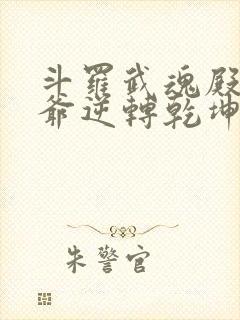 斗羅武魂殿
爺逆轉乾坤
朱警官